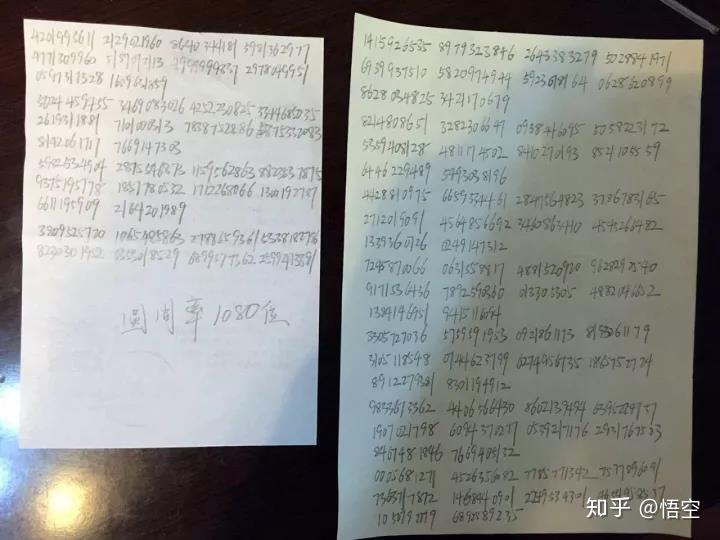 4201995611 2129021960 8640344181 5981362977
4771309960 5187072113 4999999837 2978049951
0597317328 1609631859
5024459455 3469083026 4252230825 3344685035
2619311881 7101000313 7838752886 5875332083
8142061717 7669147303
5982534904 2875546873 1159562863 8823537875
9375195778 1857780532 1712268066 1300192787
6611195909 2164201989
3809525720 1065485863 2788659361 5338182796
8230301952 0353018529 6899577362 2599413891
圆周率1080位
1415926535 8979323846 2643383279 5028841971
6939937510 5820974944 5923078164 0628620899
8628034825 3421170679
8214808651 3282306647 0938446095 5058223172
5359408128 4811174502 8410270193 8521105559
6446229489 5493038196
4428810975 6659334461 2847564823 3786783165
2712019091 4564856692 3460348610 4543266482
1339360726 0249141273
7245870066 0631558817 4881520920 9628292540
9171536436 7892590360 0113305305 4882046652
1384146951 9415116094
3305727036 5759591953 0921861173 8193261179
3105118548 0744623799 6274956735 1885752724
8912279381 8301194912
9833673362 4406566430 8602139494 6395224737
1907021798 6094370277 0539217176 2931767523
8467481846 7669405132
0005681271 4526356082 7785771342 7577896091
7363717872 1468440901 2249534301 4654958537
1050792279 6892589235
知乎 @悟空